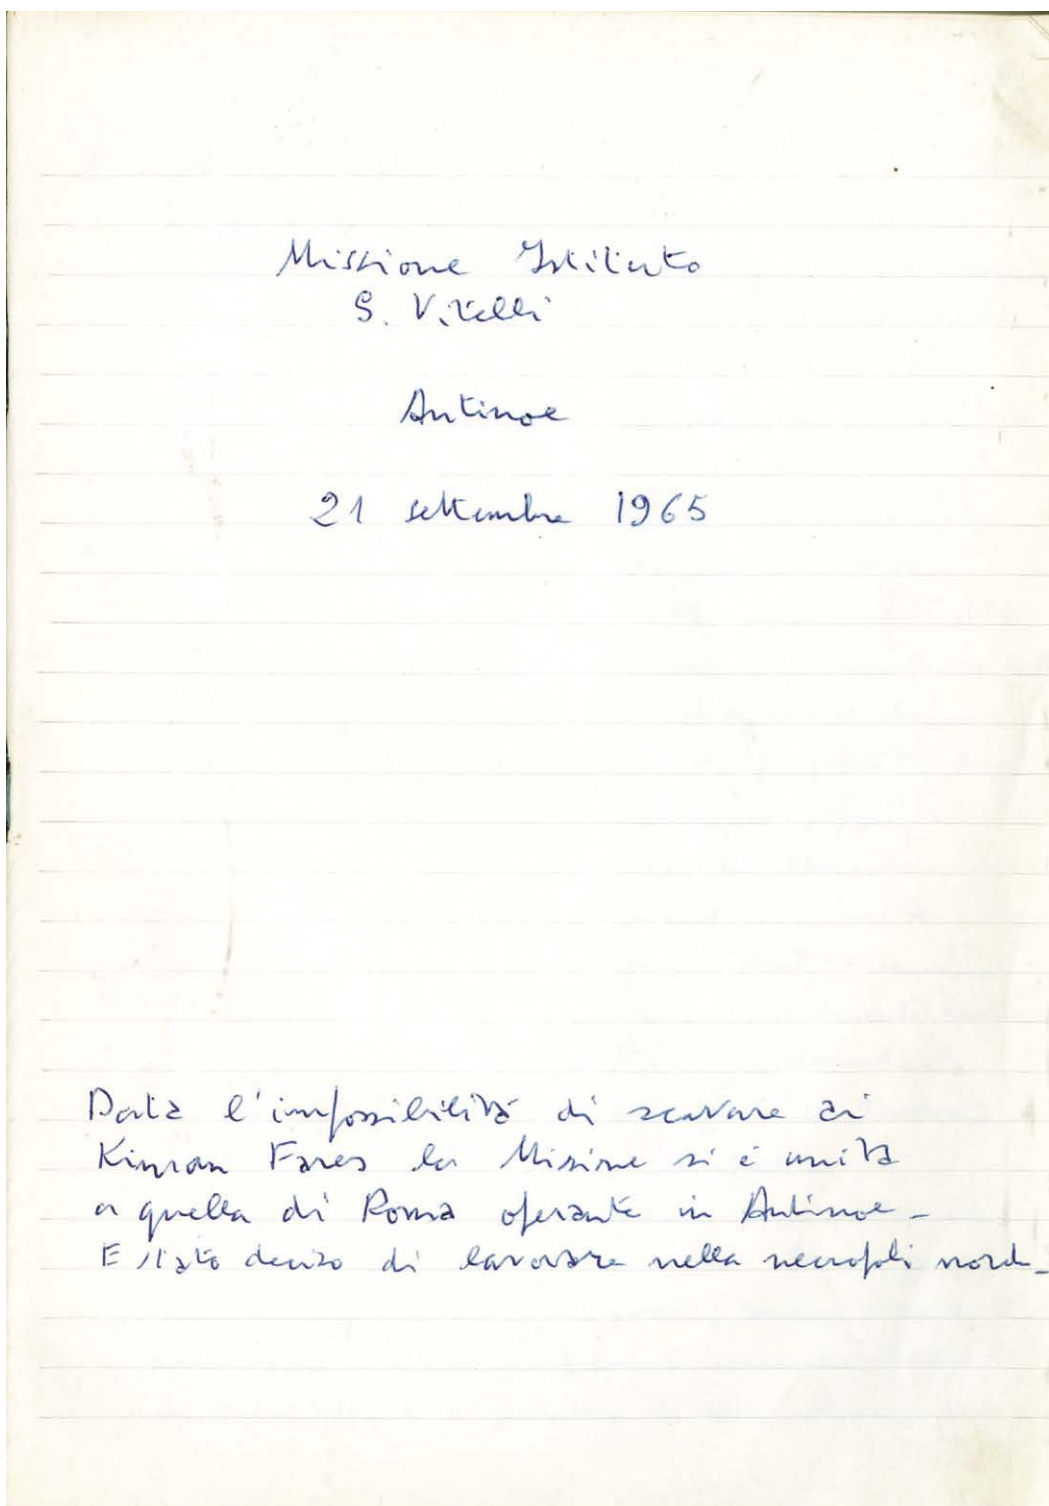 Missione Istituto
G. Vitelli
Antinoe
21 settembre 1965
Data l'impossibilità di scavare ai
Kiman Fares la Missione si è unita
a quella di Roma operante in Antinoe -
E stato deciso di lavorare nella necropoli nord -